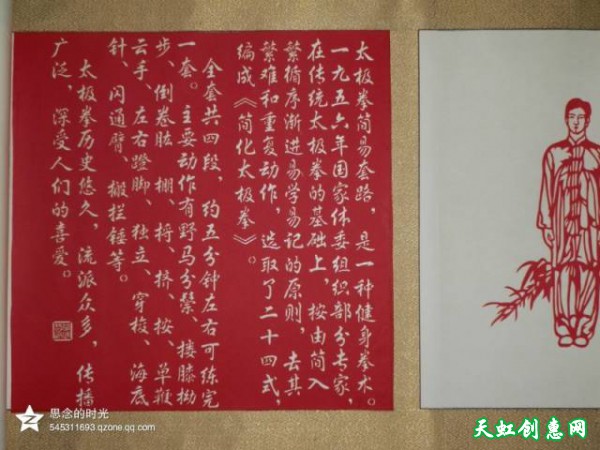 太极拳简易套路，是一种健身拳术。
一九五六年国家体委组织部分专家，
在传统太极拳的基础上，按由简入
繁循序渐进易学易记的原则，去其
繁难和重复动作，选取了二十四式，
编成《简化太极拳》。
全套共四段，约五分钟左右可练完
一套。主要动作有野马分鬃、搂膝拗
步、倒卷肱、掤、捋、挤、按、单鞭
云手、左右蹬脚、独立、穿梭、海底
针、闪通臂、搬拦锤等。
太极拳历史悠久，流派众多，传播
广泛，深受人们的喜爱。
思念的时光
545311693.qzone.qq.com
天虹创惠网